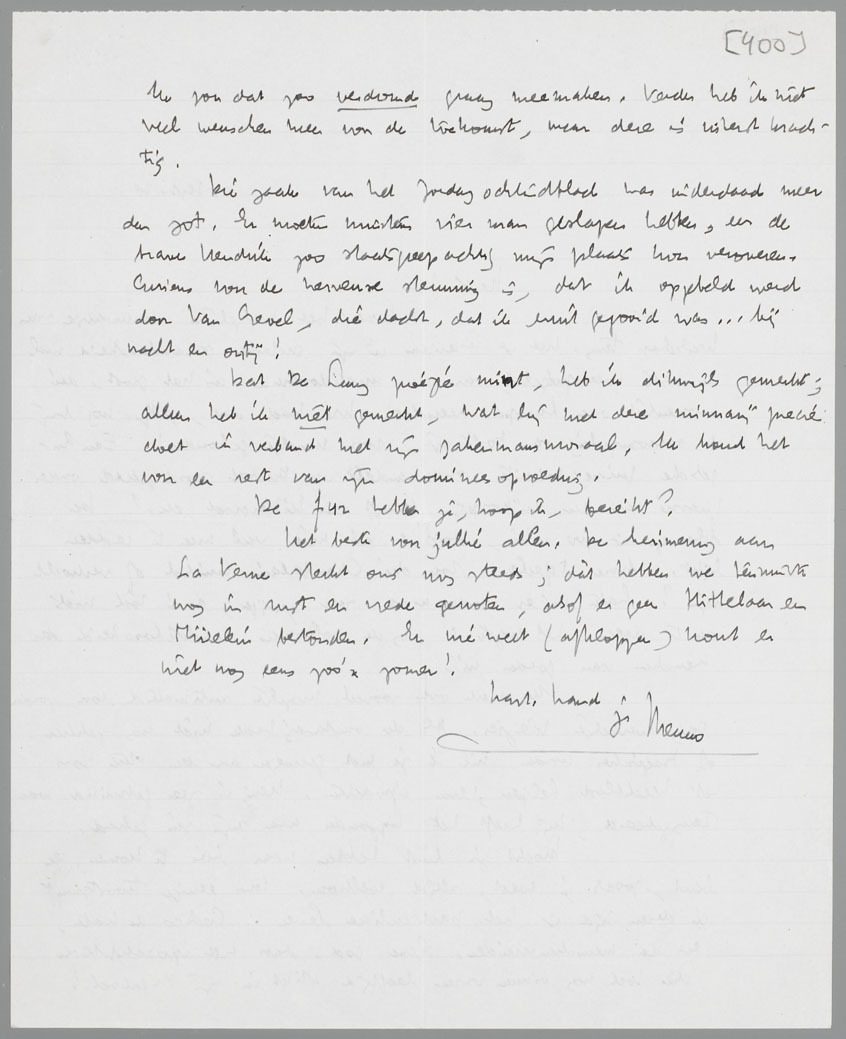 [400]
Ik zou dat zoo verdomd graag meemaken. Verder heb ik niet
veel wenschen meer voor de toekomst, maar deze is uiterst krach-
tig.
Die zaak van het Zondagochtendblad was inderdaad meer
dan zot. Er moeten minstens vier man geslapen hebben, eer de
brave Hendrik zoo staatsgreepachtig mijn plaats kon veroveren.
Curieus voor de nerveuze stemming is, dat ik opgebeld werd
door Van Crevel, die dacht, dat ik eruit gegooid was... bij
nacht en ontij!
Dat De Leeuw poëzie mint, heb ik dikwijls gemerkt;
alleen heb ik niet gemerkt, wat hij met deze minnarij
doet in verband met zijn zakenmansmoraal. Ik houd het
voor een rest van zijn domineesopvoeding.
De f 42 hebben je, hoop ik, bereikt?
Het beste voor jullie allen. De herinnering aan
La Verne ons nog steeds; dàt hebben we tenminste
nog in rust en vrede genoten, alsof er geen en
bestonden. En wie weet (afkloppen) komt er
niet nog eens zoo'n zomer!
hart. hand
je Menno